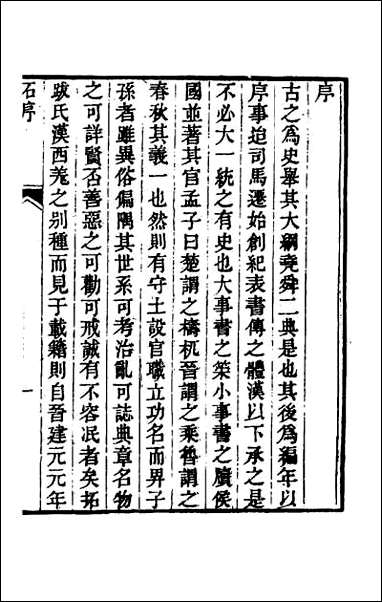 序
古之爲史舉其大綱堯舜二典是也其後爲編年以
序事迨司馬遷始創紀表書傳之體漢以下承之是
不必大一統之有史也大事書之策小事書之牘侯
國並著其官孟子曰楚謂之檮杌晉謂之乘魯謂之
春秋其義一也然則有守土設官職立功名而畀子
孫者雖異俗偏隅其世系可考治亂可誌典章名物
之可詳賢否善惡之可勸可戒誠有不容泯者矣拓
跋氏漢西羗之別種而見于載籍則自晉建元元年
石序
一